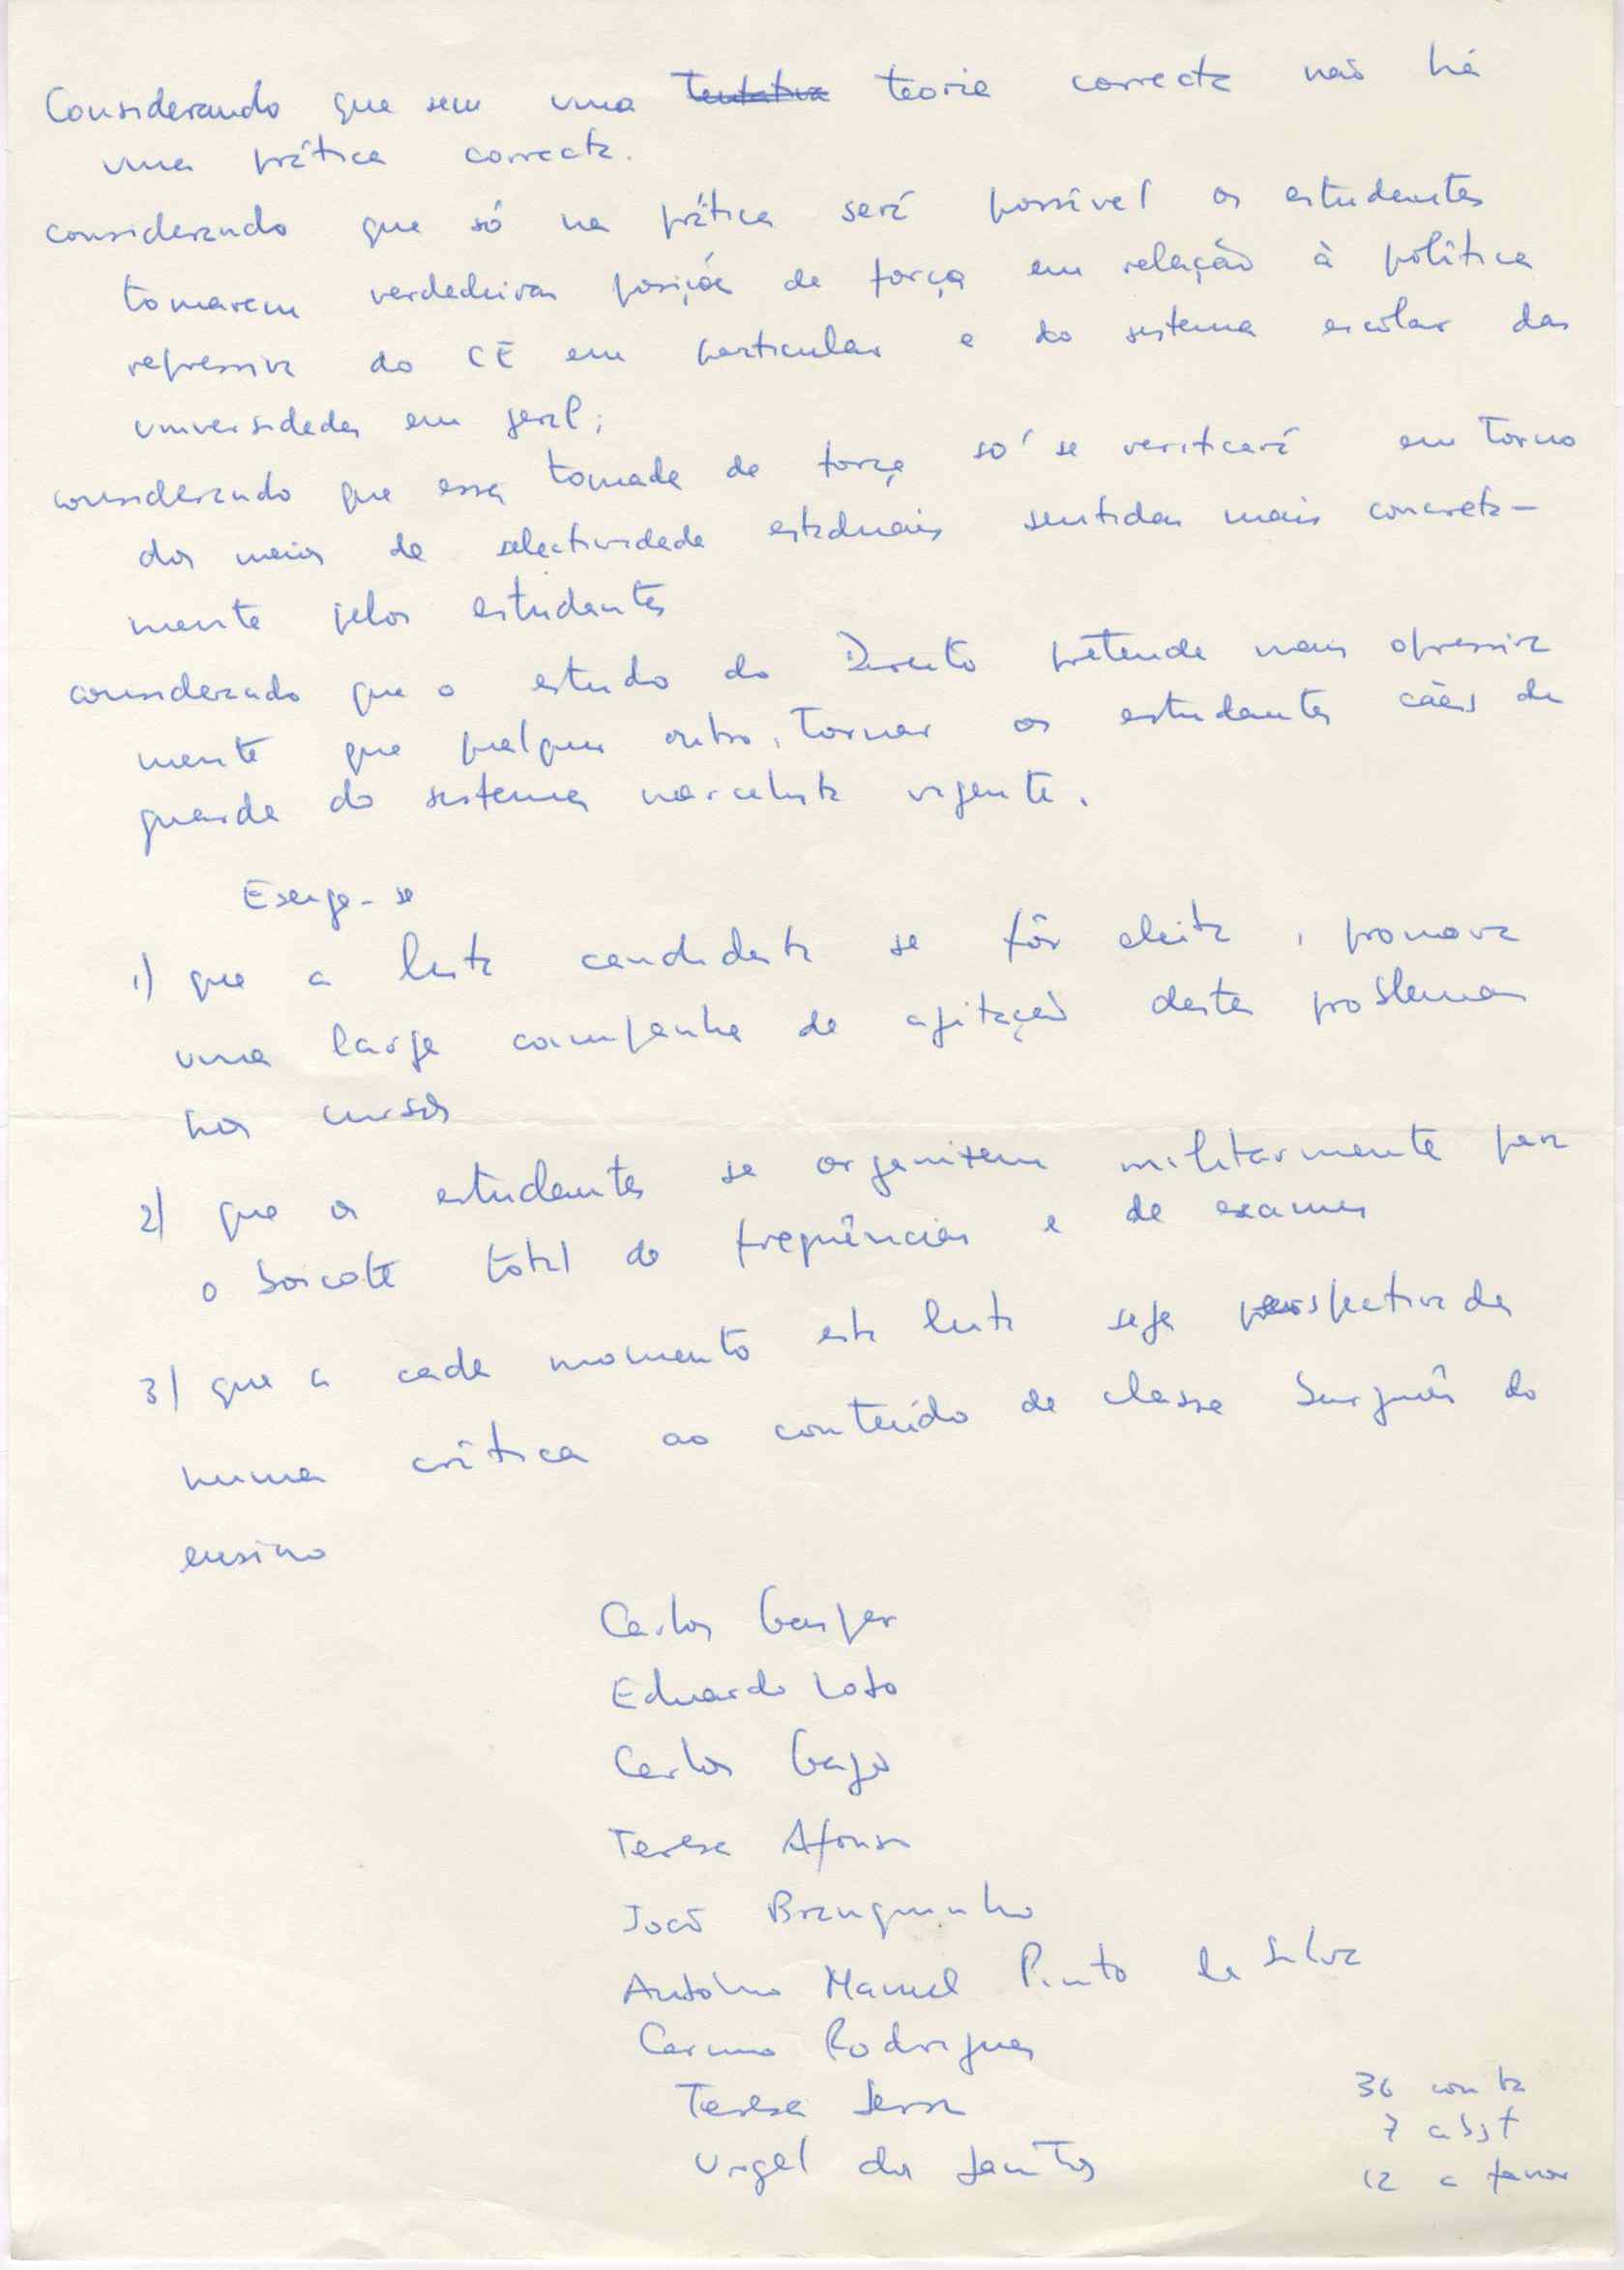 Considerando que sem uma tentativa teoria correcta não há
uma prática correcta.
considerando que só na prática será possível os estudantes
tomarem verdadeiras posições de força em relação à política
repressiva do CE em particular e do sistema escolar das
universidades em geral;
considerando que essa tomada de força só se verificará em torno
dos meios de selectividade estaduais sentidos mais concreta-
mente pelos estudantes
considerando que o estudo do Direito pretende mais opressiva
mente que qualquer outro, tornar os estudantes cães de
guarda do sistema marcelista vigente.
Exige-se
1) que a lista candidata se fôr eleita, promova
uma larga campanha de agitação destes problemas
nos cursos
2) que os estudantes se organizem militarmente para
o boicote total de frequências e de exames
3) que a cada momento esta luta seja perspectivada
numa crítica ao conteúdo de classe burguês do
ensino
Carlos Gaspar
Eduardo
Carlos Gago
Teresa Afonso
João Branquinho
António Manuel Pinto da Silva
Carmo Rodrigues
Teresa Serra
Urgel dos Santos
36 contra
7 abst
12 a favor